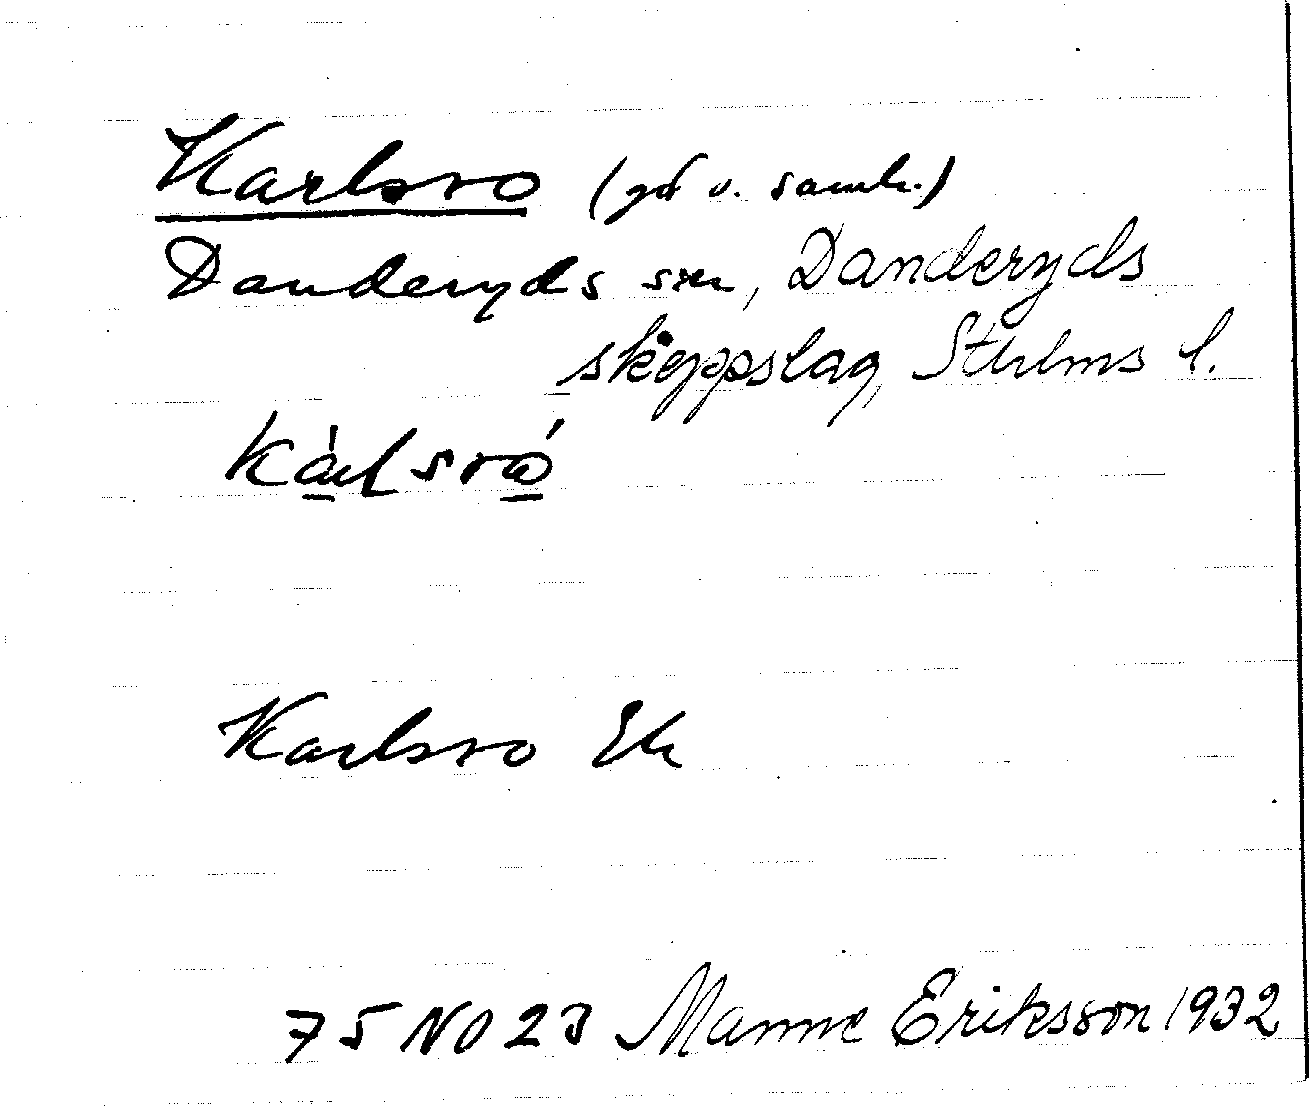 Karlsro (gd o. samh.)
Danderyds sn, Danderyds
skeppslag, Sthlms l.
kárlsró
Karlsro Ek
75 NO 23 Manne Eriksson 1932